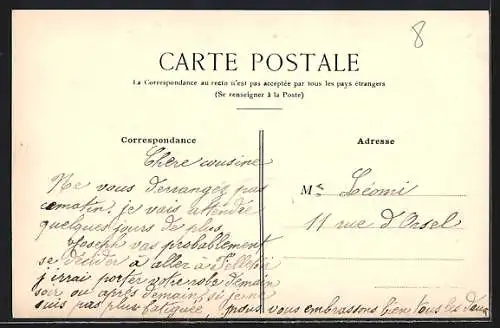 8
CARTE POSTALE
La Correspondance au recto n'est pas acceptée par tous les pays étrangers
(Se renseigner à la Poste)
Correspondance
Adresse
Chère cousine
Ne vous derrangéz pas
cematin, je vais attendre
quelques jours de plus
Joseph vas probablement
se décider a aller à
j'irrai porter votre robe demain
soir ou après demain, si je ne
suis pas plus fatiguée, nous vous embrassons bien tous les deux
Mme Léomi
11 rue d'Orsel